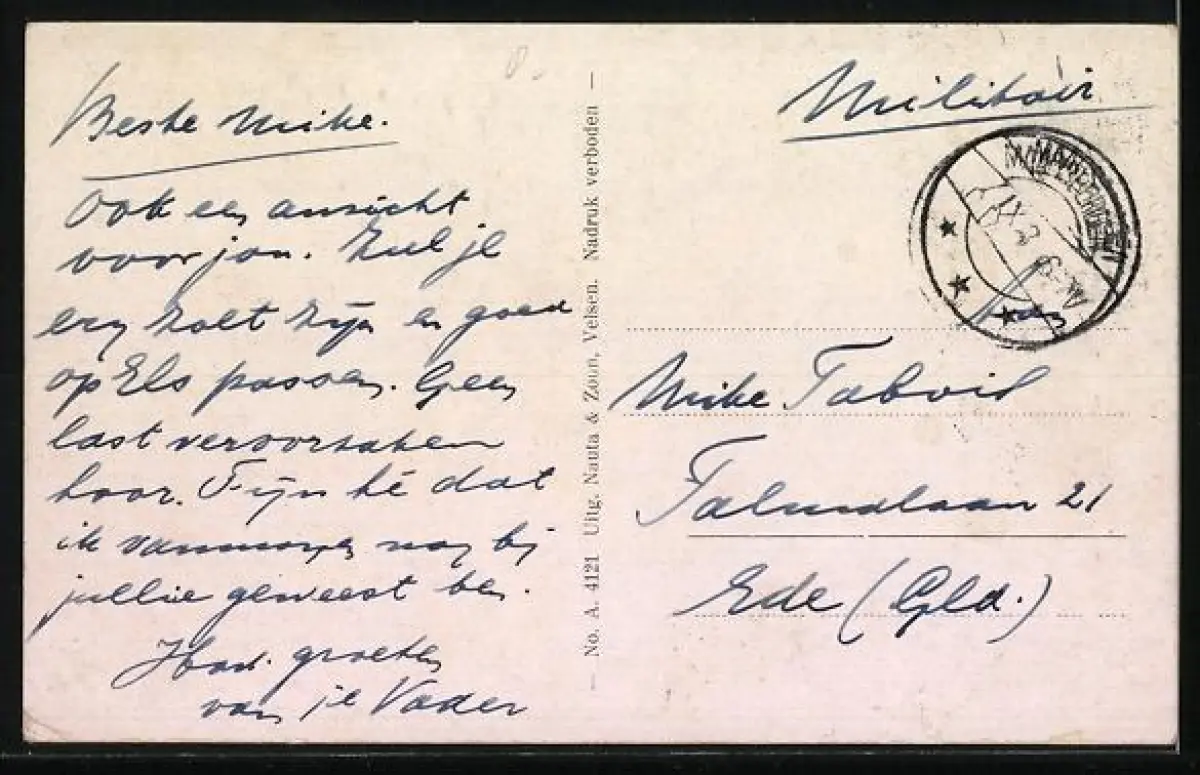 Beste Mike.
Ook een ansicht
voor jou. Zul je
erg zoet zijn en goed
op Els passen. Geen
last veroorzaken
hoor. Fijn hé dat
ik vanmorgen nog bij
jullie geweest ben.
Hart. groeten
van je Vader
— No. A. 4121 Uitg. Nauta & Zoun, Velsen. Nadruk verboden —
Militair
Mike
Talmalaan 21
Ede (Gld.)